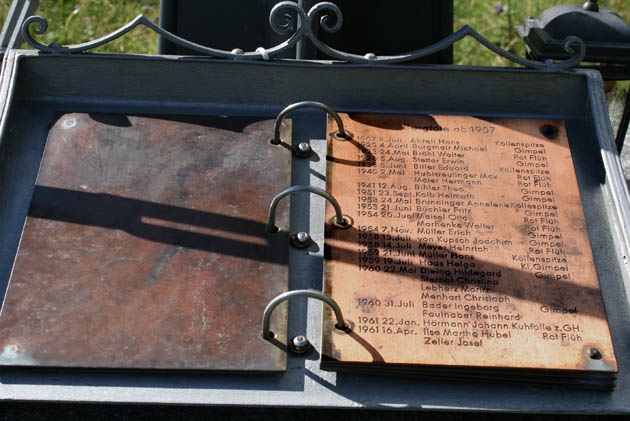 Bergtote ab 1907
1907 9.Juli Abrell Hans Köllenspitze
1920 4.April Burgmair Michael Gimpel
24.Mai Brähl Walter Rot Flüh
5.Aug. Stetter Erwin Gimpel
5.Juni Biller Eduard Köllenspitze
1940 2.Mai Hubisreutinger Max Rot Flüh
Maier Hermann Rot Flüh
1941 12.Aug. Bihler Theo Gimpel
1951 23.Sept. Kolb Helmuth Gimpel
1953 24.Mai Brunninger Annelene Köllenspitze
1953 21.Juni Büchler Fritz Gimpel
1954 20.Juni Maisel Otto Rot Flüh
Marhenke Walter Rot Flüh
1954 7.Nov. Müller Erich Gimpel
1958 13.Juli von Kupsch Joachim Gimpel
1958 14.Juli Meyer Heinrich Gimpel
1959 21.Juni Müller Hans Köllenspitze
1959 19.Juli Haas Helga Kl.Gimpel
1960 22.Mai Dieing Hildegard Gimpel
Sternal Christina
Lebherz Moritz
Menhart Christoph
1960 31.Juli Bader Ingeborg Gimpel
Faulhaber Reinhard
1961 22.Jan. Hörmann Johann Kuhfalle z.GH.
1961 16.Apr. Ilse Martha Hubel Rot Flüh
Zeller Josef